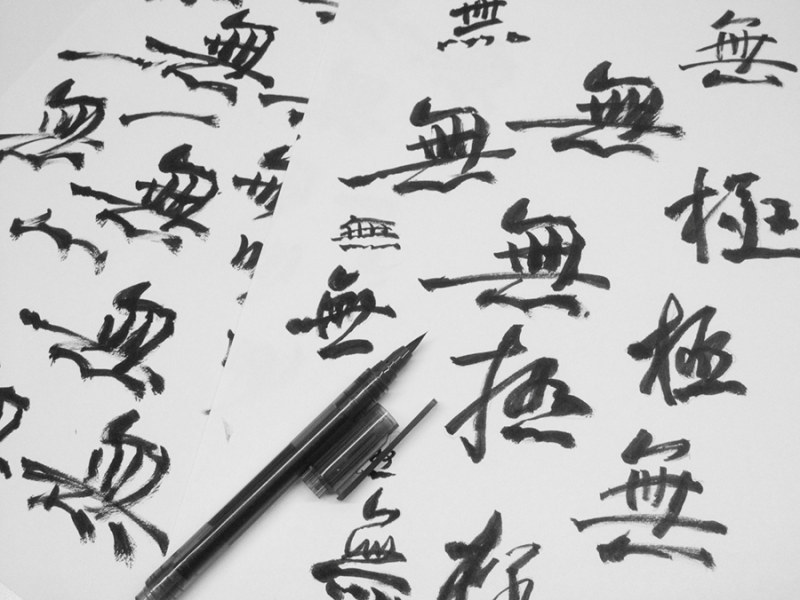 無
無
無
無
無
無
無
無
極
無
無
無
無
極
極
無
無
無